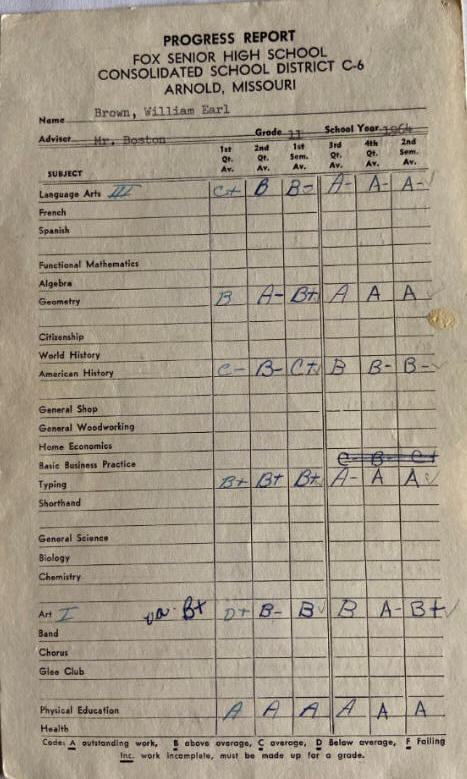 PROGRESS REPORT
FOX SENIOR HIGH SCHOOL
CONSOLIDATED SCHOOL DISTRICT C-6
ARNOLD, MISSOURI
Name Brown, William Earl
Adviser Mr. Boston Grade 11 School Year 1964
SUBJECT 1st Qt. Av. 2nd Qt. Av. 1st Sem. Av. 3rd Qt. Av. 4th Qt. Av. 2nd Sem. Av.
Language Arts III C+ B B- A- A- A-
French
Spanish
Functional Mathematics
Algebra
Geometry B A- B+ A A A
Citizenship
World History
American History C- B- C+ B B- B-
General Shop
General Woodworking
Home Economics
Basic Business Practice C- B- C+
Typing B+ B+ B+ A- A A
Shorthand
General Science
Biology
Chemistry
Art I B+ D+ B- B B A- B+
Band
Chorus
Glee Club
Physical Education A A A A A A
Health
Code: A outstanding work, B above average, C average, D Below average, F Failing
Inc. work incomplete, must be made up for a grade.